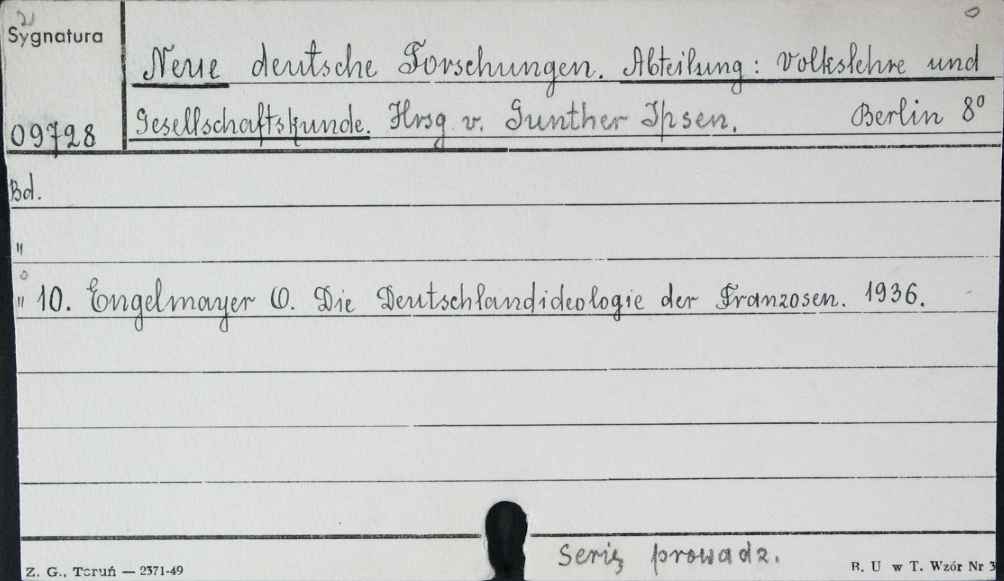 Sygnatura
09728
Neue deutsche Forschungen. Abteilung: Volkslehre und
Gesellschaftskunde. Hrsg v. Gunther Ipsen. Berlin 8°
Bd.
"
" 10. Engelmayer O. Die Deutschlandideologie der Franzosen. 1936.
Serię prowadz.
Z. G., Toruń — 2371-49
B. U w T. Wzór Nr 3